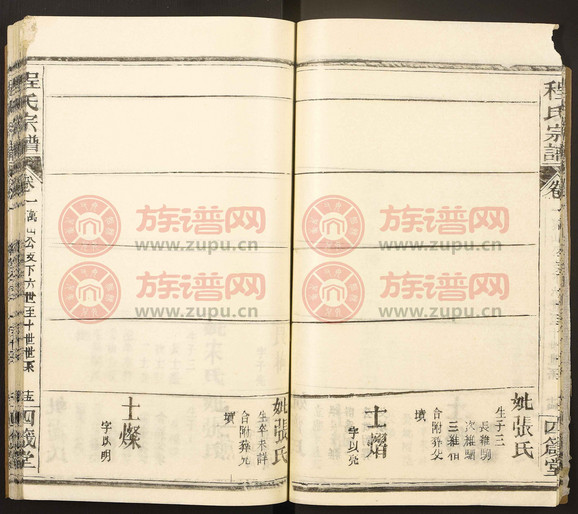 程氏宗譜
妣張氏
生子三
長維
次維
三維
合附葬父
墳
士熠
字以亮
妣張氏
生卒未詳
合附葬兄
墳
士燦
字以明
程氏宗譜
卷一
公支下六世至十世世系
四箴堂
族谱网
www.zupu.cn
族谱网
www.zupu.cn
族谱网
www.zupu.cn
族谱网
www.zupu.cn